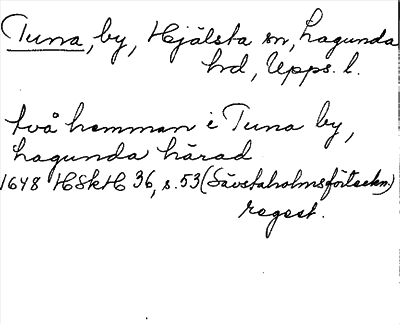 Tuna, by, Hjälsta sn, Lagunda
hd, Upps. l.
två hemman i Tuna by,
Lagunda härad
1648 HSkH 36, s. 53 (Sävstaholmsförteckn.)
regest.